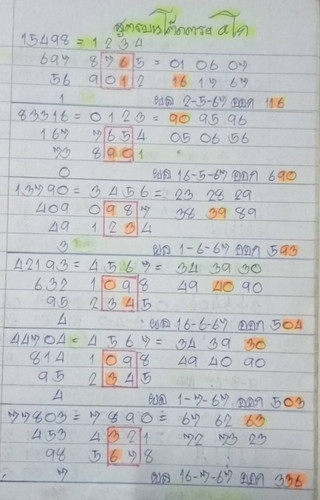 สูตรบนโต๊ดตรง ดีโก
15498 = 1 2 3 4
697 8 7 6 5 = 01 06 07
56 9 0 1 2 16 17 67
1 ผล 2-5-67 ออก 116
83316 = 0 1 2 3 = 90 95 96
167 7 6 5 4 05 06 56
73 8 9 0 1
0 ผล 16-5-67 ออก 690
13790 = 3 4 5 6 = 23 28 29
409 0 9 8 7 38 39 89
49 1 2 3 4
3 ผล 1-6-67 ออก 593
42193 = 4 5 6 7 = 34 39 30
632 1 0 9 8 49 40 90
95 2 3 4 5
4 ผล 16-6-67 ออก 504
44704 = 4 5 6 7 = 34 39 30
814 1 0 9 8 49 40 90
95 2 3 4 5
4 ผล 1-7-67 ออก 503
77803 = 7 8 9 0 = 67 62 63
453 4 3 2 1 72 73 23
98 5 6 7 8
7 ผล 16-7-67 ออก 336